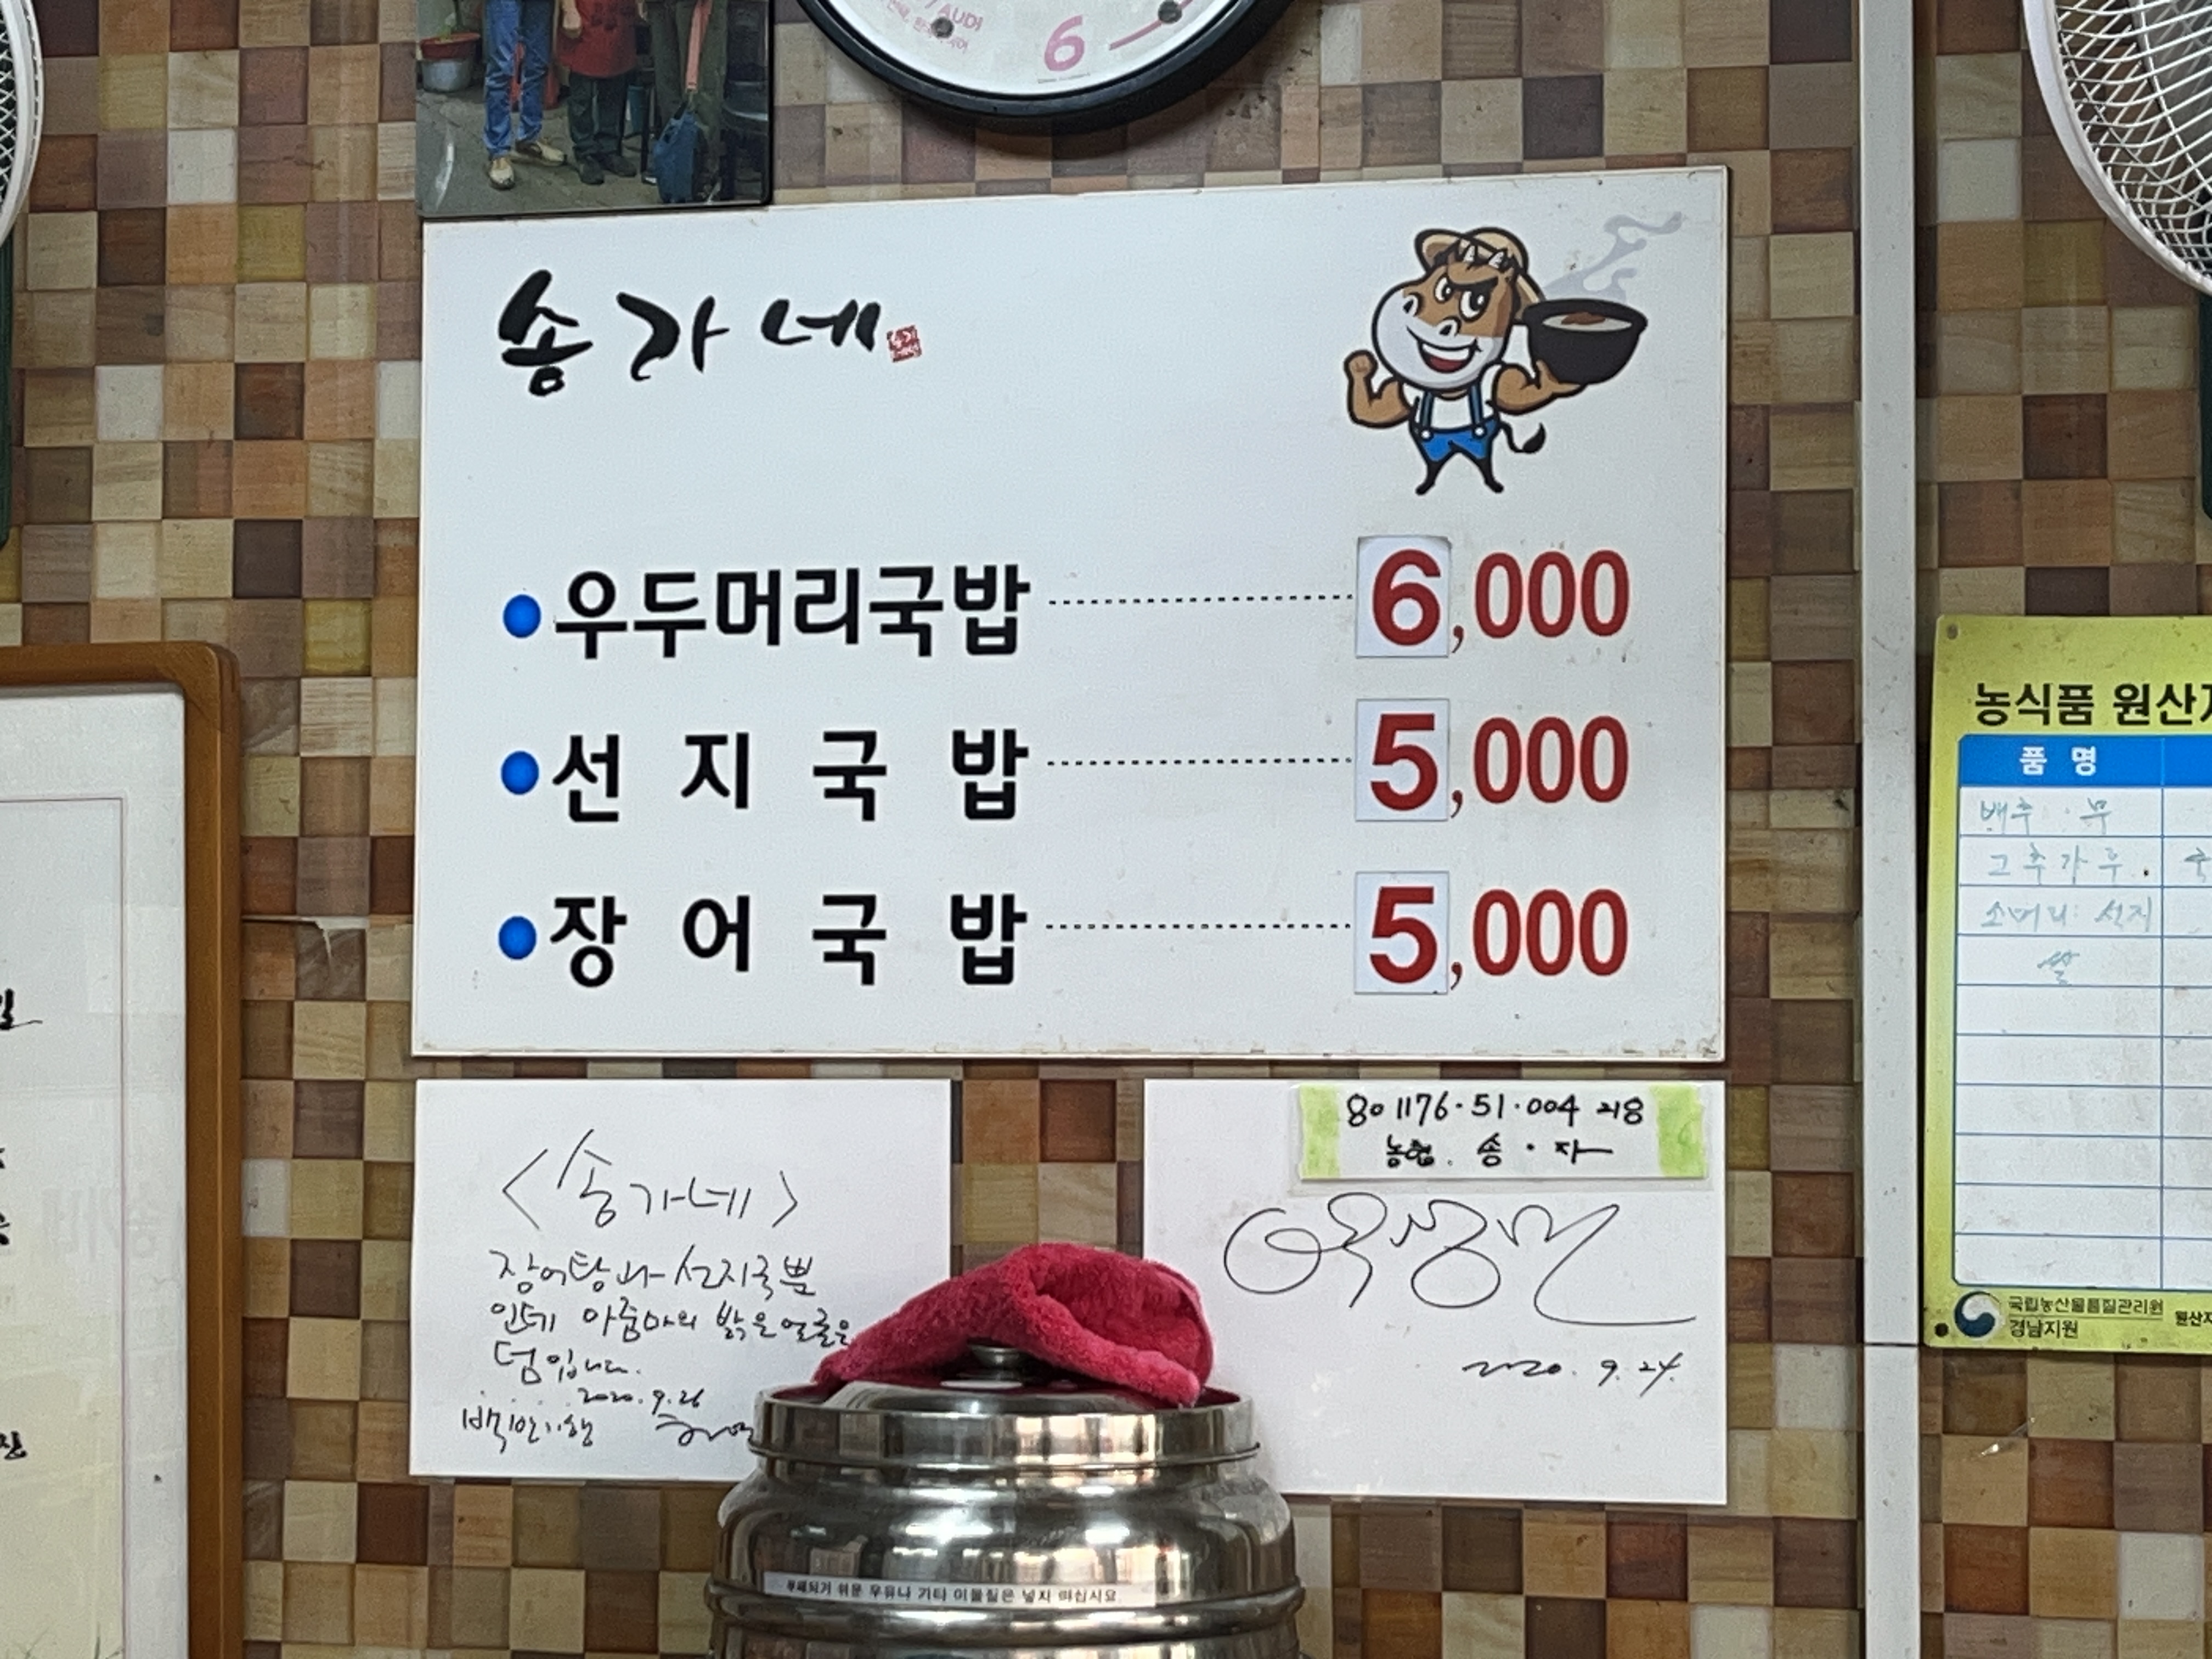 AUDI
6
송가네
우두머리국밥 6,000
선지국밥 5,000
장어국밥 5,000
농식품 원산
품명
배추·무
고추가루
소머리 선지
쌀
국립농산물품질관리원
경남지원
원산지
<송가네>
장어탕과 선지국뿐
인데 아줌마의 밝은 얼굴은
덤입니다.
2020.9.26
백반기행
농협 송·자
2020.9.24.
부패되기 쉬운 우유나 기타 이물질은 넣지 마십시요.